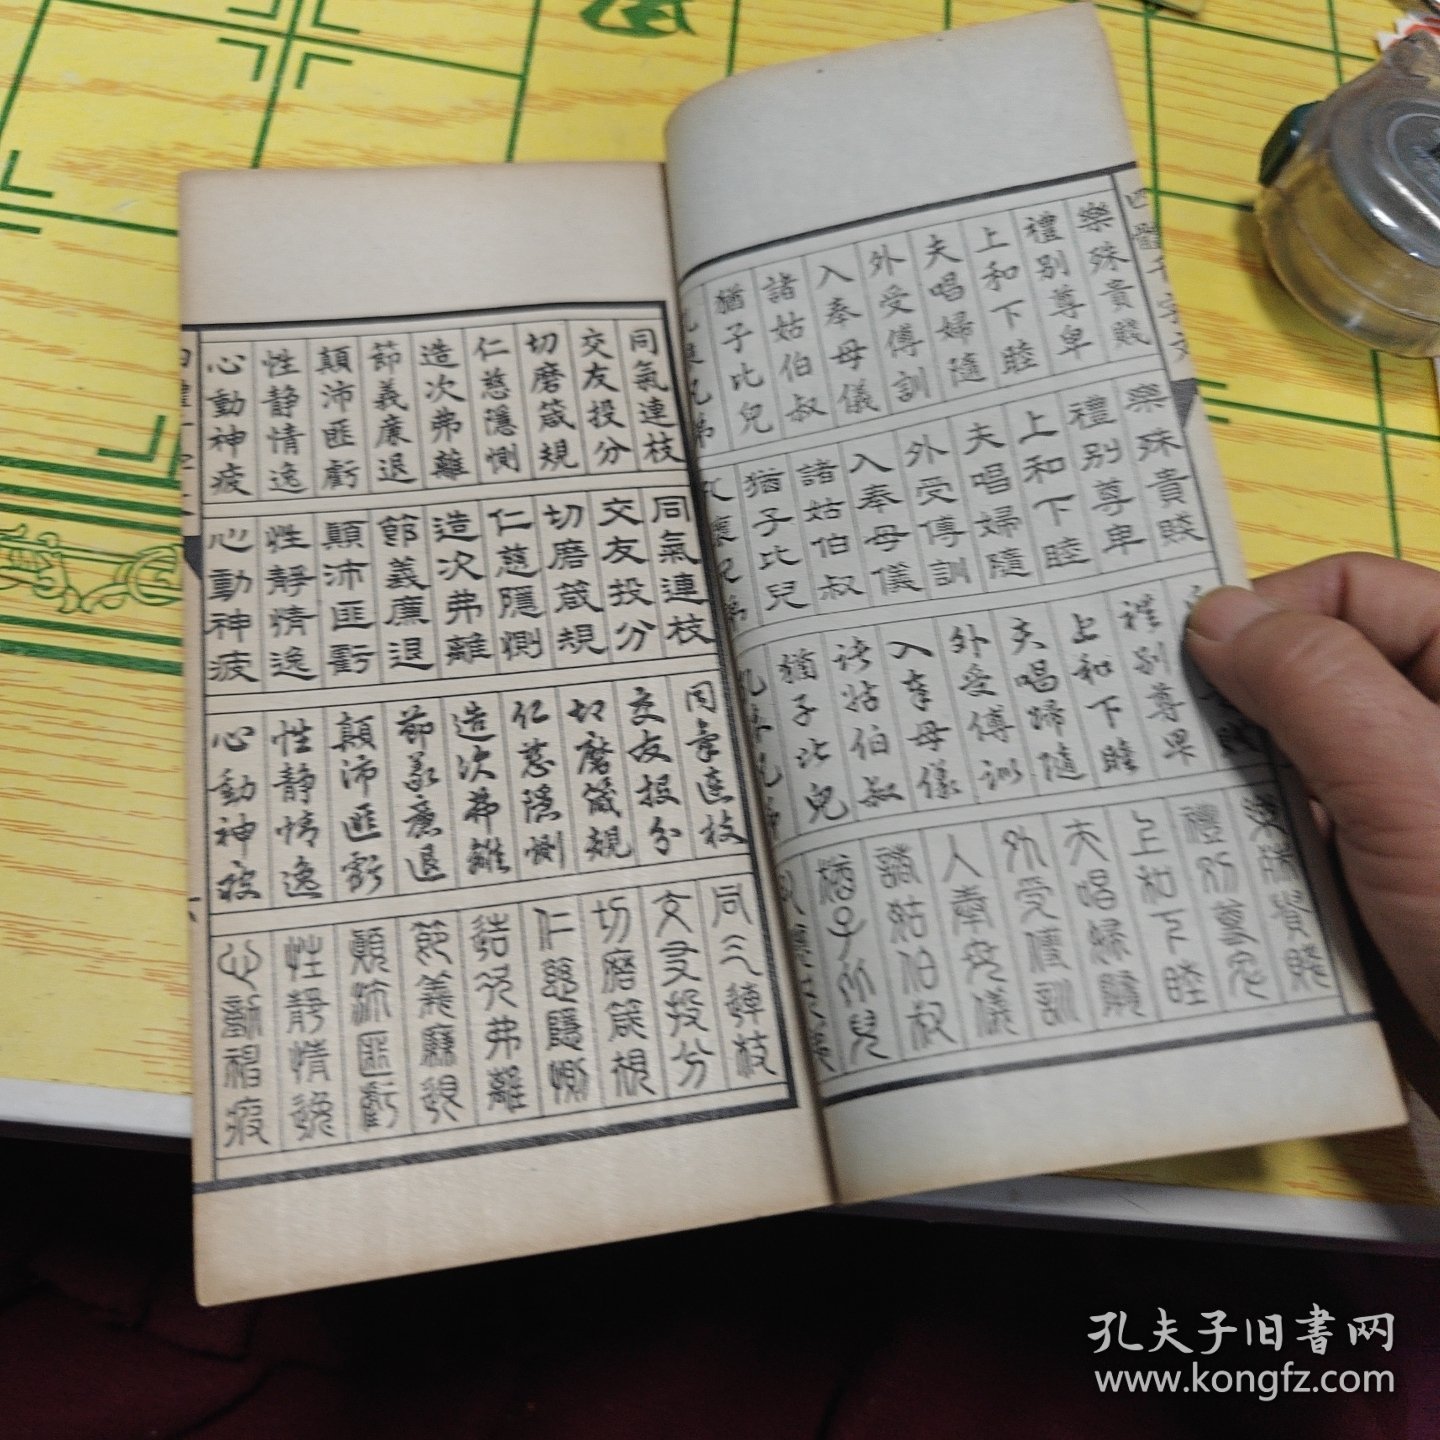 四體千字文
樂殊貴賤
禮別尊卑
上和下睦
夫唱婦隨
外受傅訓
入奉母儀
諸姑伯叔
猶子比兒
孔懷兄弟
樂殊貴賤
禮別尊卑
上和下睦
夫唱婦隨
外受傅訓
入奉母儀
諸姑伯叔
猶子比兒
孔懷兄弟
禮別尊卑
上和下睦
夫唱婦隨
外受傅訓
入奉母儀
諸姑伯叔
猶子比兒
孔懷兄弟
樂殊貴賤
禮別尊卑
上和下睦
夫唱婦隨
外受傅訓
入奉母儀
諸姑伯叔
猶子比兒
孔懷兄弟
同氣連枝
交友投分
切磨箴規
仁慈隱惻
造次弗離
節義廉退
顛沛匪虧
性靜情逸
心動神疲
同氣連枝
交友投分
切磨箴規
仁慈隱惻
造次弗離
節義廉退
顛沛匪虧
性靜情逸
心動神疲
同氣連枝
交友投分
切磨箴規
仁慈隱惻
造次弗離
節義廉退
顛沛匪虧
性靜情逸
心動神疲
同气連枝
交友投分
切磨箴規
仁慈隱惻
造次弗離
節義廉退
顛沛匪虧
性靜情逸
心動神疲
孔夫子旧書网
www.kongfz.com